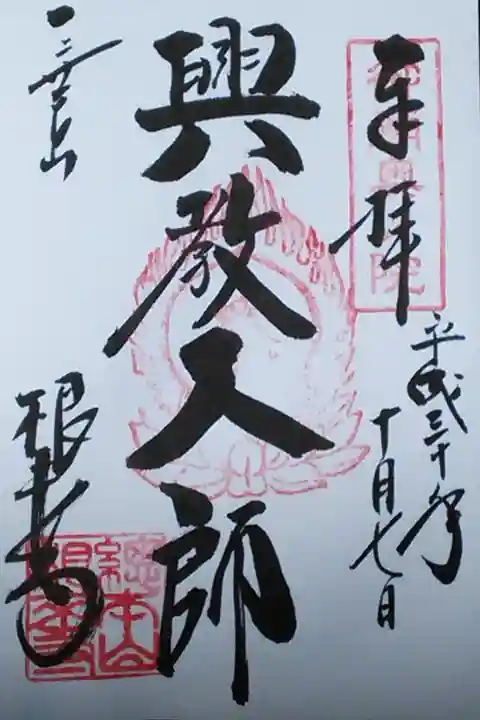 奉拝
平成三十年
十月七日
興教大師
一乗山
根来寺
總本山
根來寺